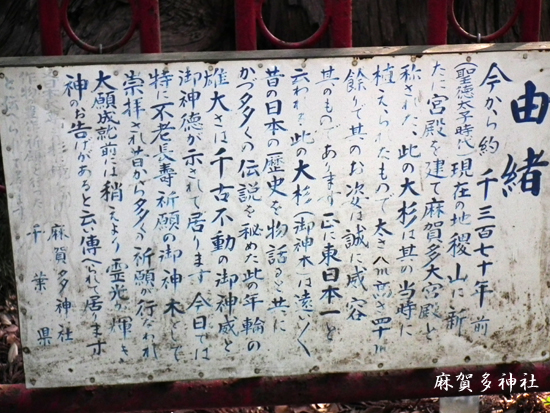 由緒
今から約 千三百七十年前
(聖徳太子時代)現在の地稷山に新
たに宮殿を建て麻賀多大宮殿と
称された、此の大杉は其の当時に
植えられたもので太さ八m高さ四十m
餘りで其のお姿は誠に威容
其のものであります 正に東日本一と
云われる此の大杉(御神木)は遠く
昔の日本の歴史を物語ると共に
かづ多くの伝説を秘めた此の年輪の
雄大さは千古不動の御神威と
御神徳が示されて居ります 今日では
特に不老長寿祈願の御神木として
崇拝され昔から多くの祈願が行なわれ
大願成就前には梢えより霊光が輝き
神のお告げがあると云い傳へられて居ります
麻賀多神社
千葉県
麻賀多神社